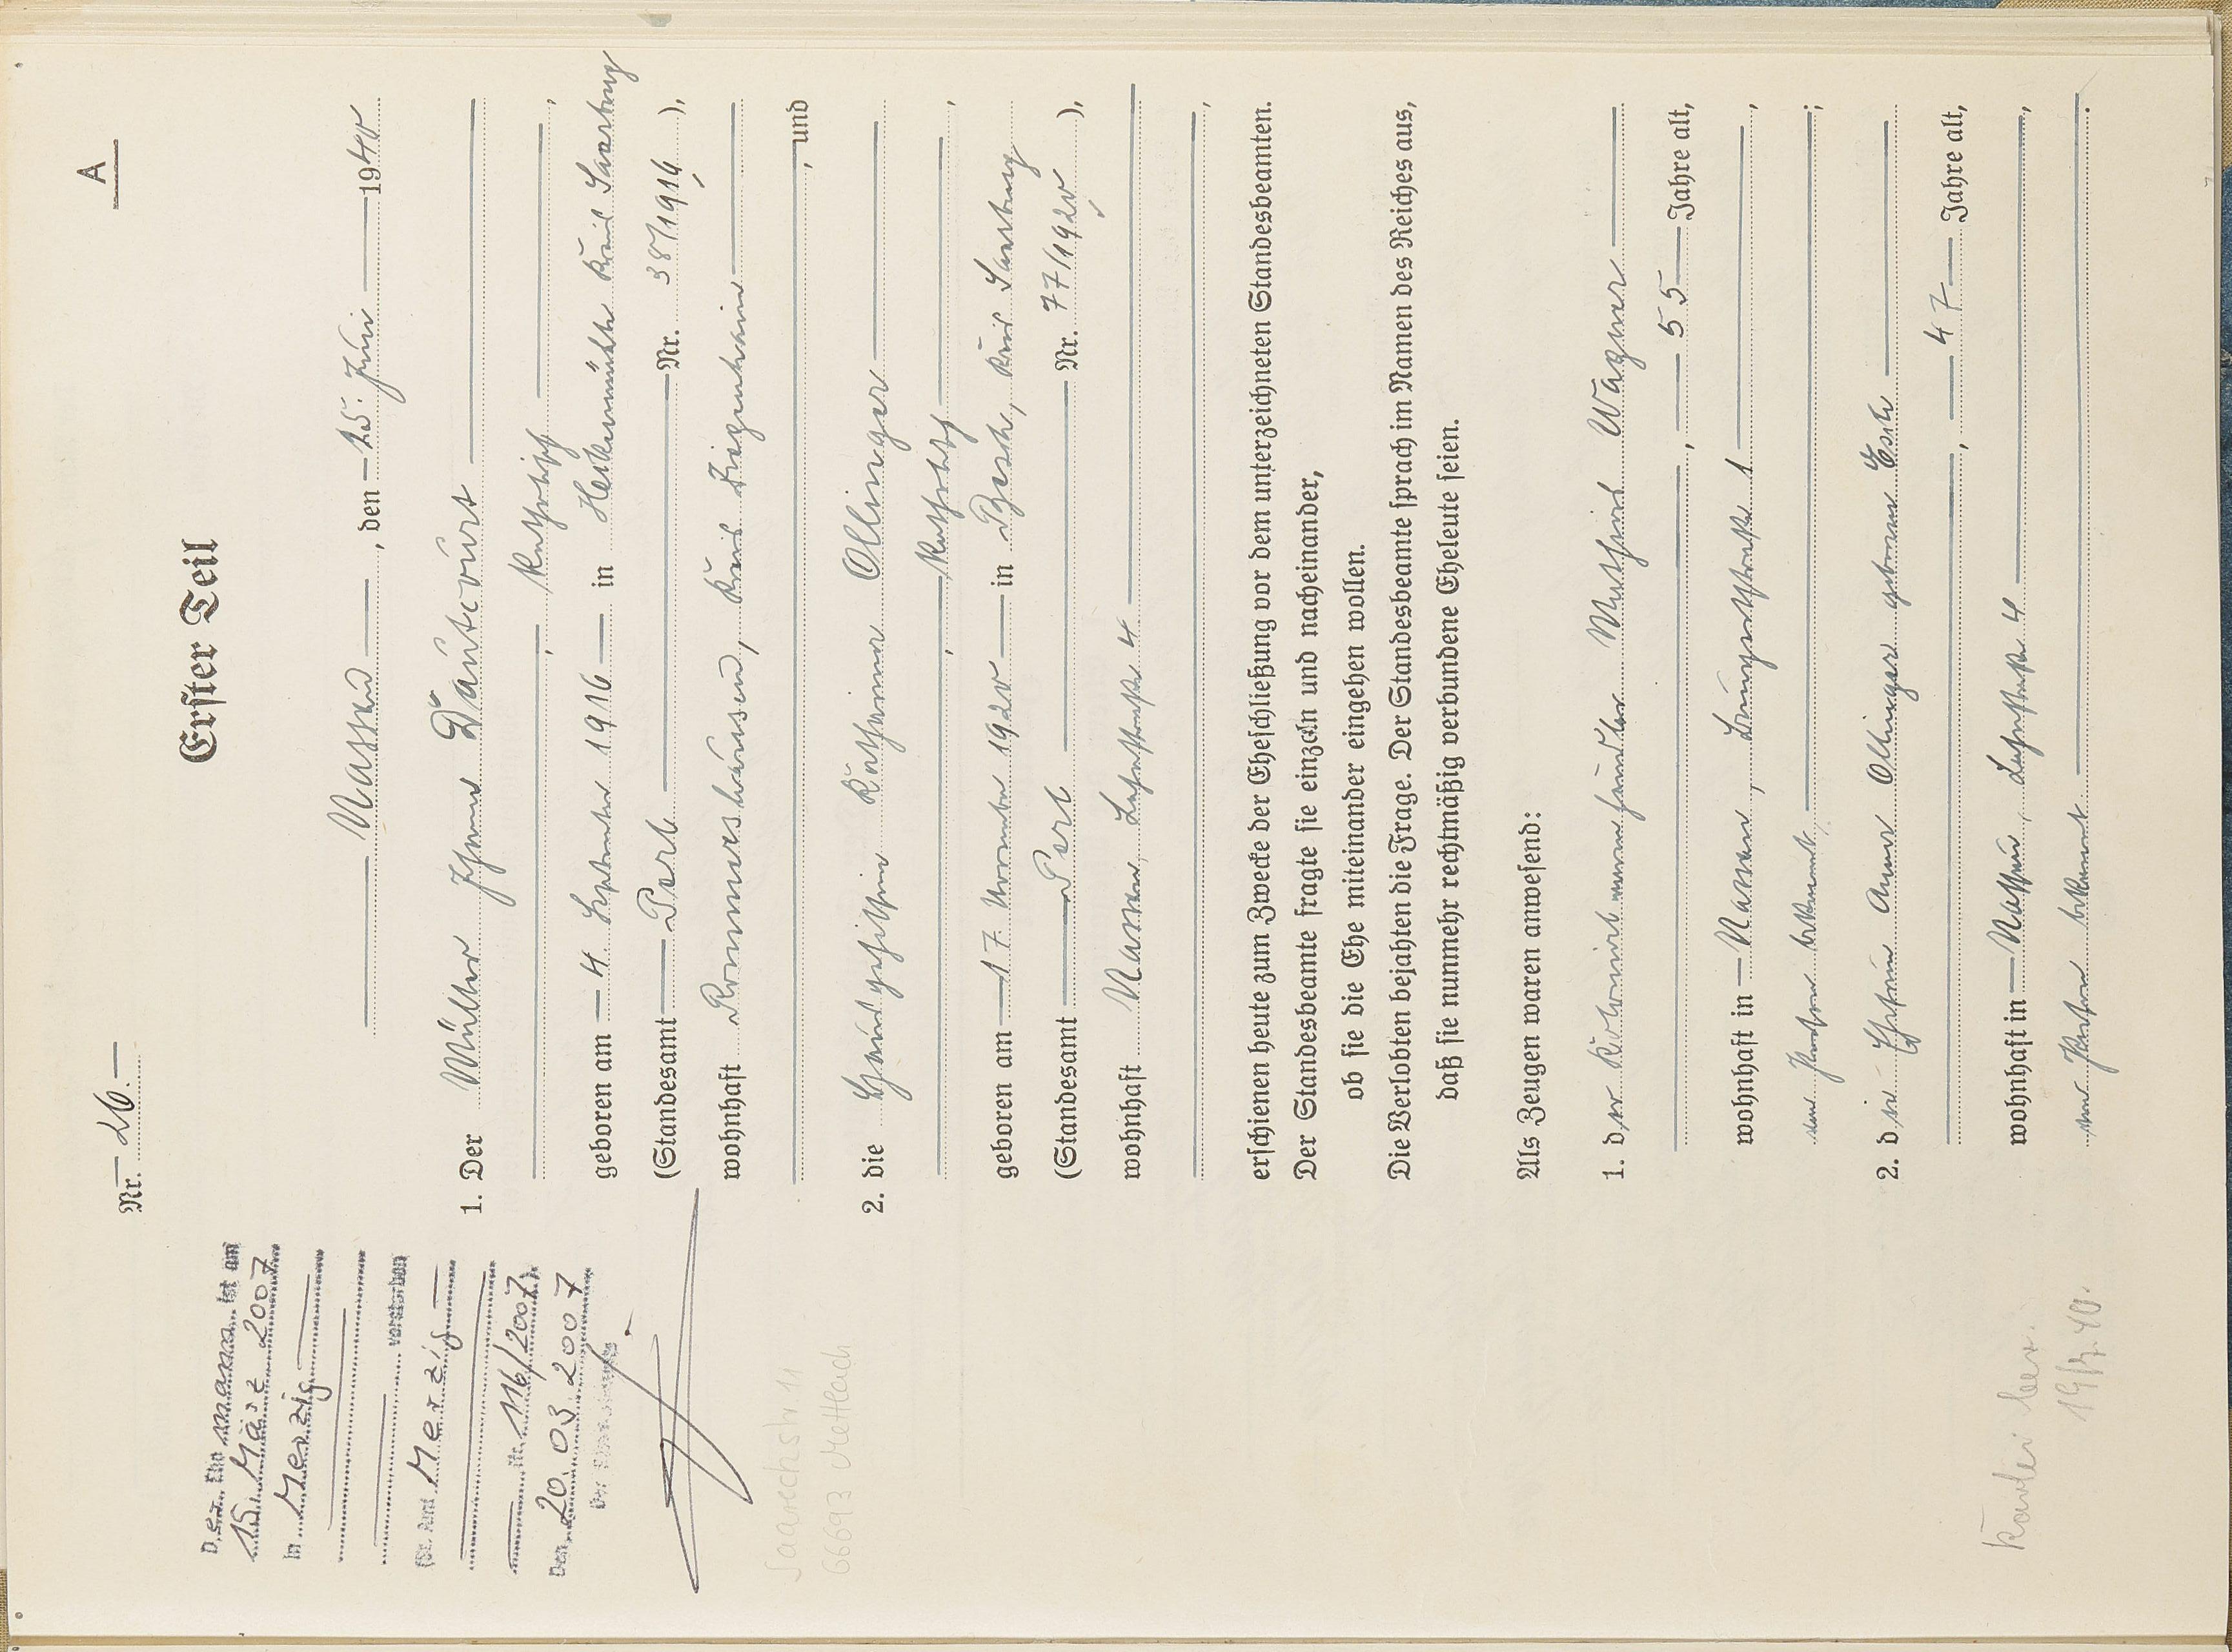 A
Nr. 26.
Erster Teil
Nassau, den 25. Juni 1940
1. Der Müller Johann Dautcourt
katholisch,
geboren am 4. September 1916 in Kreis Saarburg
(Standesamt Perl Nr. 38/1916),
wohnhaft Rommershausen, Kreis Ziegenhain
, und
2. die Katharina Ollinger
, katholisch,
geboren am 17. November 1920 in Besch, Kreis Saarburg
(Standesamt Perl Nr. 77/1920),
wohnhaft Nassau, 4
,
erschienen heute zum Zwecke der Eheschließung vor dem unterzeichneten Standesbeamten.
Der Standesbeamte fragte sie einzeln und nacheinander,
ob sie die Ehe miteinander eingehen wollen.
Die Verlobten bejahten die Frage. Der Standesbeamte sprach im Namen des Reiches aus,
daß sie nunmehr rechtmäßig verbundene Eheleute seien.
Als Zeugen waren anwesend:
1. der Mathias Wagner
, 55 Jahre alt,
wohnhaft in Nassau, 1,
der Person bekannt;
2. die Ehefrau Anna Ollinger geborene Esch
, 47 Jahre alt,
wohnhaft in Nassau, 4,
der Person bekannt.
Der Ehemann ist am
15. März 2007
in Merzig
verstorben
(St. Amt Merzig
Nr. 116/2007).
Den 20.03.2007
Der Standesbeamte
66693 Mettlach
Kartei ber.